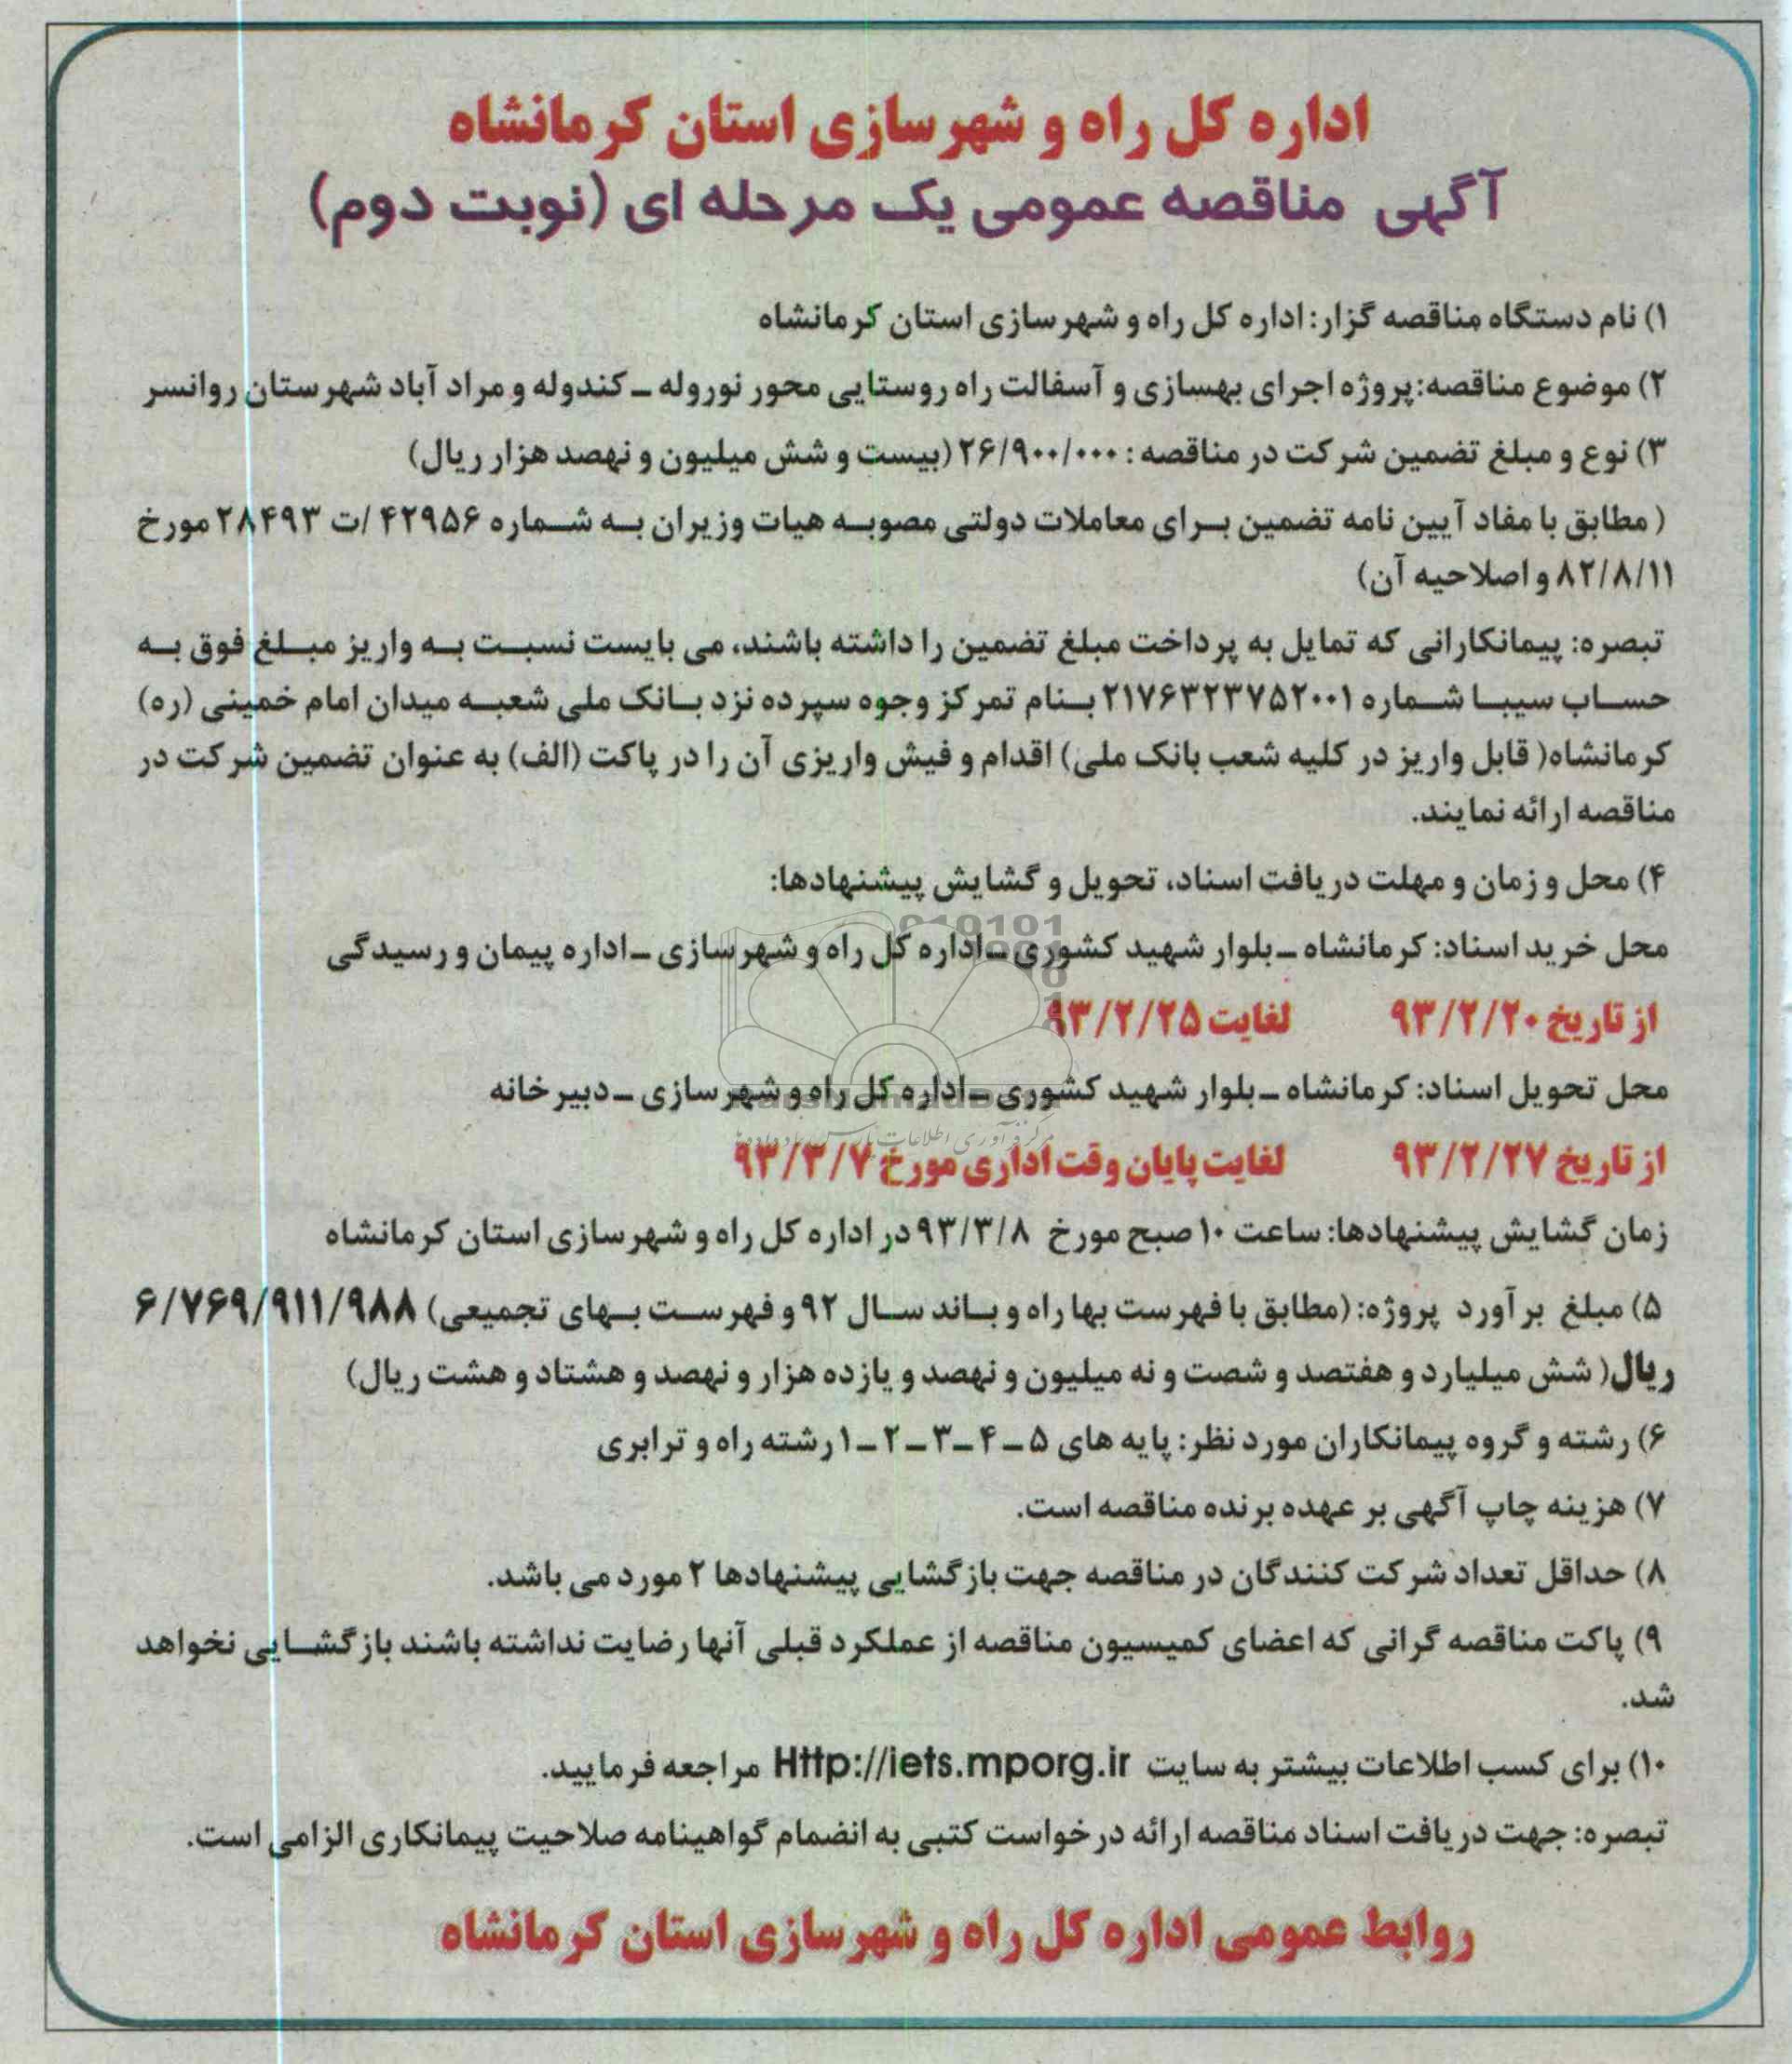 اداره کل راه و شهرسازی استان کرمانشاه
آگهی مناقصه عمومی یک مرحله ای (نوبت دوم)
۱) نام دستگاه مناقصه گزار: اداره کل راه و شهرسازی استان کرمانشاه
۲) موضوع مناقصه: پروژه اجرای بهسازی و آسفالت راه روستایی محور نوروله ـ کندوله و مراد آباد شهرستان روانسر
۳) نوع و مبلغ تضمین شرکت در مناقصه : ۲۶/۹۰۰/۰۰۰ (بیست و شش میلیون و نهصد هزار ریال)
( مطابق با مفاد آیین نامه تضمین برای معاملات دولتی مصوبه هیات وزیران به شماره ۴۲۹۵۶ /ت ۲۸۴۹۳ مورخ
۸۲/۸/۱۱ و اصلاحیه آن)
تبصره: پیمانکارانی که تمایل به پرداخت مبلغ تضمین را داشته باشند، می بایست نسبت به واریز مبلغ فوق به
حساب سیبا شماره ۲۱۷۶۳۲۳۷۵۲۰۰۱ بنام تمرکز وجوه سپرده نزد بانک ملی شعبه میدان امام خمینی (ره)
کرمانشاه( قابل واریز در کلیه شعب بانک ملی) اقدام و فیش واریزی آن را در پاکت (الف) به عنوان تضمین شرکت در
مناقصه ارائه نمایند.
۴) محل و زمان و مهلت دریافت اسناد، تحویل و گشایش پیشنهادها:
محل خرید اسناد: کرمانشاه ـ بلوار شهید کشوری ـ اداره کل راه و شهرسازی ـ اداره پیمان و رسیدگی
از تاریخ ۹۳/۲/۲۰ لغایت ۹۳/۲/۲۵
محل تحویل اسناد: کرمانشاه ـ بلوار شهید کشوری ـ اداره کل راه و شهرسازی ـ دبیرخانه
از تاریخ ۹۳/۲/۲۷ لغایت پایان وقت اداری مورخ ۹۳/۳/۷
زمان گشایش پیشنهادها: ساعت ۱۰ صبح مورخ ۹۳/۳/۸ در اداره کل راه و شهرسازی استان کرمانشاه
۵) مبلغ برآورد پروژه: (مطابق با فهرست بها راه و باند سال ۹۲ و فهرست بهای تجمیعی) ۶/۷۶۹/۹۱۱/۹۸۸
ریال( شش میلیارد و هفتصد و شصت و نه میلیون و نهصد و یازده هزار و نهصد و هشتاد و هشت ریال)
۶) رشته و گروه پیمانکاران مورد نظر: پایه های ۵ ـ ۴ ـ ۳ ـ ۲ ـ ۱ رشته راه و ترابری
۷) هزینه چاپ آگهی بر عهده برنده مناقصه است.
۸) حداقل تعداد شرکت کنندگان در مناقصه جهت بازگشایی پیشنهادها ۲ مورد می باشد.
۹) پاکت مناقصه گرانی که اعضای کمیسیون مناقصه از عملکرد قبلی آنها رضایت نداشته باشند بازگشایی نخواهد
شد.
۱۰) برای کسب اطلاعات بیشتر به سایت Http://iets.mporg.ir مراجعه فرمایید.
تبصره: جهت دریافت اسناد مناقصه ارائه درخواست کتبی به انضمام گواهینامه صلاحیت پیمانکاری الزامی است.
روابط عمومی اداره کل راه و شهرسازی استان کرمانشاه